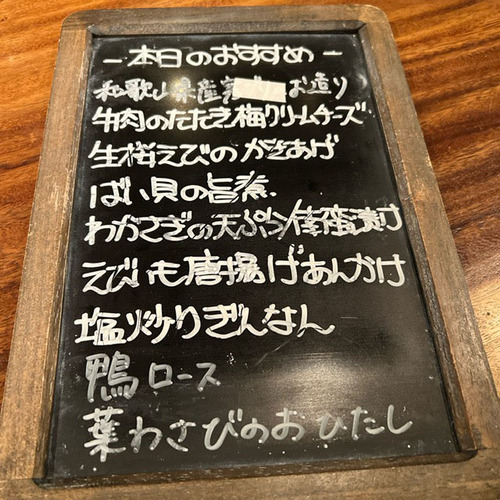 -本日のおすすめ-
和歌山県産 お造り
牛肉のたたき梅クリームチーズ
生桜えびのかきあげ
ばい貝の旨煮
わかさぎの天ぷら/南蛮漬け
えびいも唐揚げあんかけ
塩炒りぎんなん
鴨ロース
葉わさびのおひたし